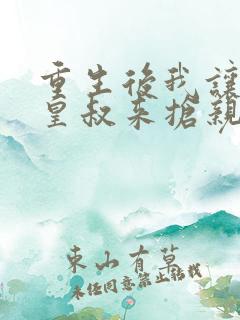 重生後我讓
皇叔来搶親
東山有草
未经同意禁止转载